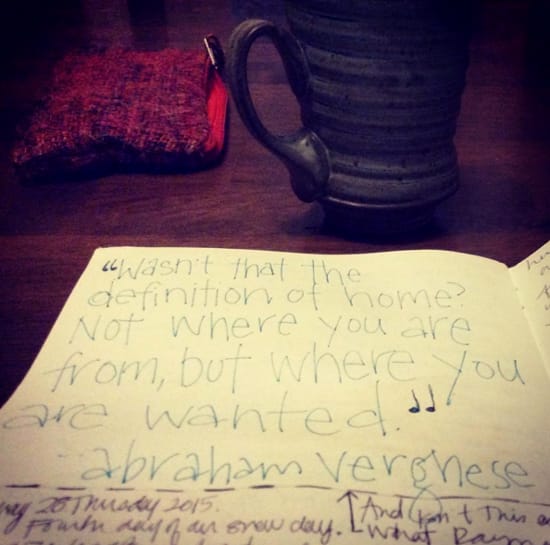 “Wasn't that the
definition of home?
Not where you are
from, but where you
are wanted."
- abraham verghese
26 Thursday 2015.
Fourth day of our snow day.
And isn't this
what